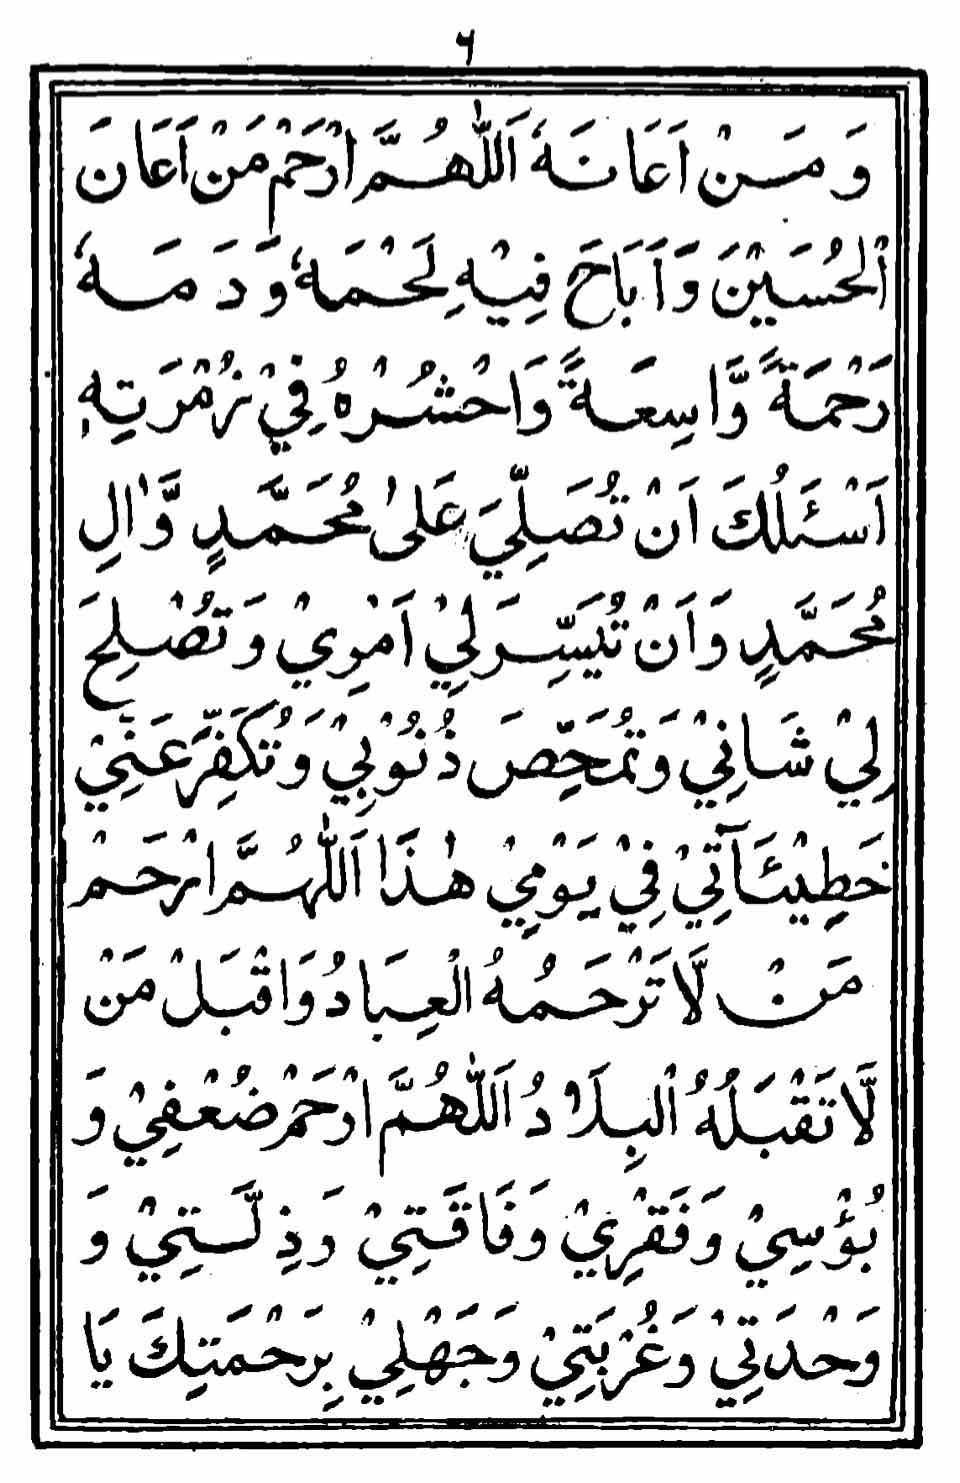 ٦
وَ مَـسـنْ اَعَانَهٗ اَللّٰهُمَّ ارْحَمْ مَنْ اَعَانَ
اْلحُسَيْنَ وَاَبَاحَ فِيْهِ لَحْمَهٗ وَدَمَهٗ
رَحْمَةً وَّاسِعَةً وَاحْشُرْهُ فِيْ زُمْرَتِهٖ
اَسْئَلُكَ اَنْ تُصَلِّيَ عَلىٰ مُحَمَّدٍ وَّاٰلِ
مُحَمَّدٍ وَاَنْ تُيَسِّرَ لِيْ اَمْرِيْ وَتُصْلِحَ
لِيْ شَانِيْ وَتُمَحِّصَ ذُنُوْبِيْ وَتُكَفِّرَ عَنِّيْ
خَطِيْئَآتِيْ فِيْ يَوْمِيْ هٰذَا اَللّٰهُمَّ ارْحَمْ
مَنْ لَّا تَرْحَمُهُ الْعِبَادُ وَاقْبَلْ مَنْ
لَّا تَقْبَلُهُ الْبِلَادُ اَللّٰهُمَّ ارْحَمْ ضُعْفِيْ وَ
بُؤْسِيْ وَفَقْرِيْ وَفَاقَتِيْ وَذِلَّتِيْ وَ
وَحْدَتِيْ وَغُرْبَتِيْ وَجَهْلِيْ بِرَحْمَتِكَ يَا